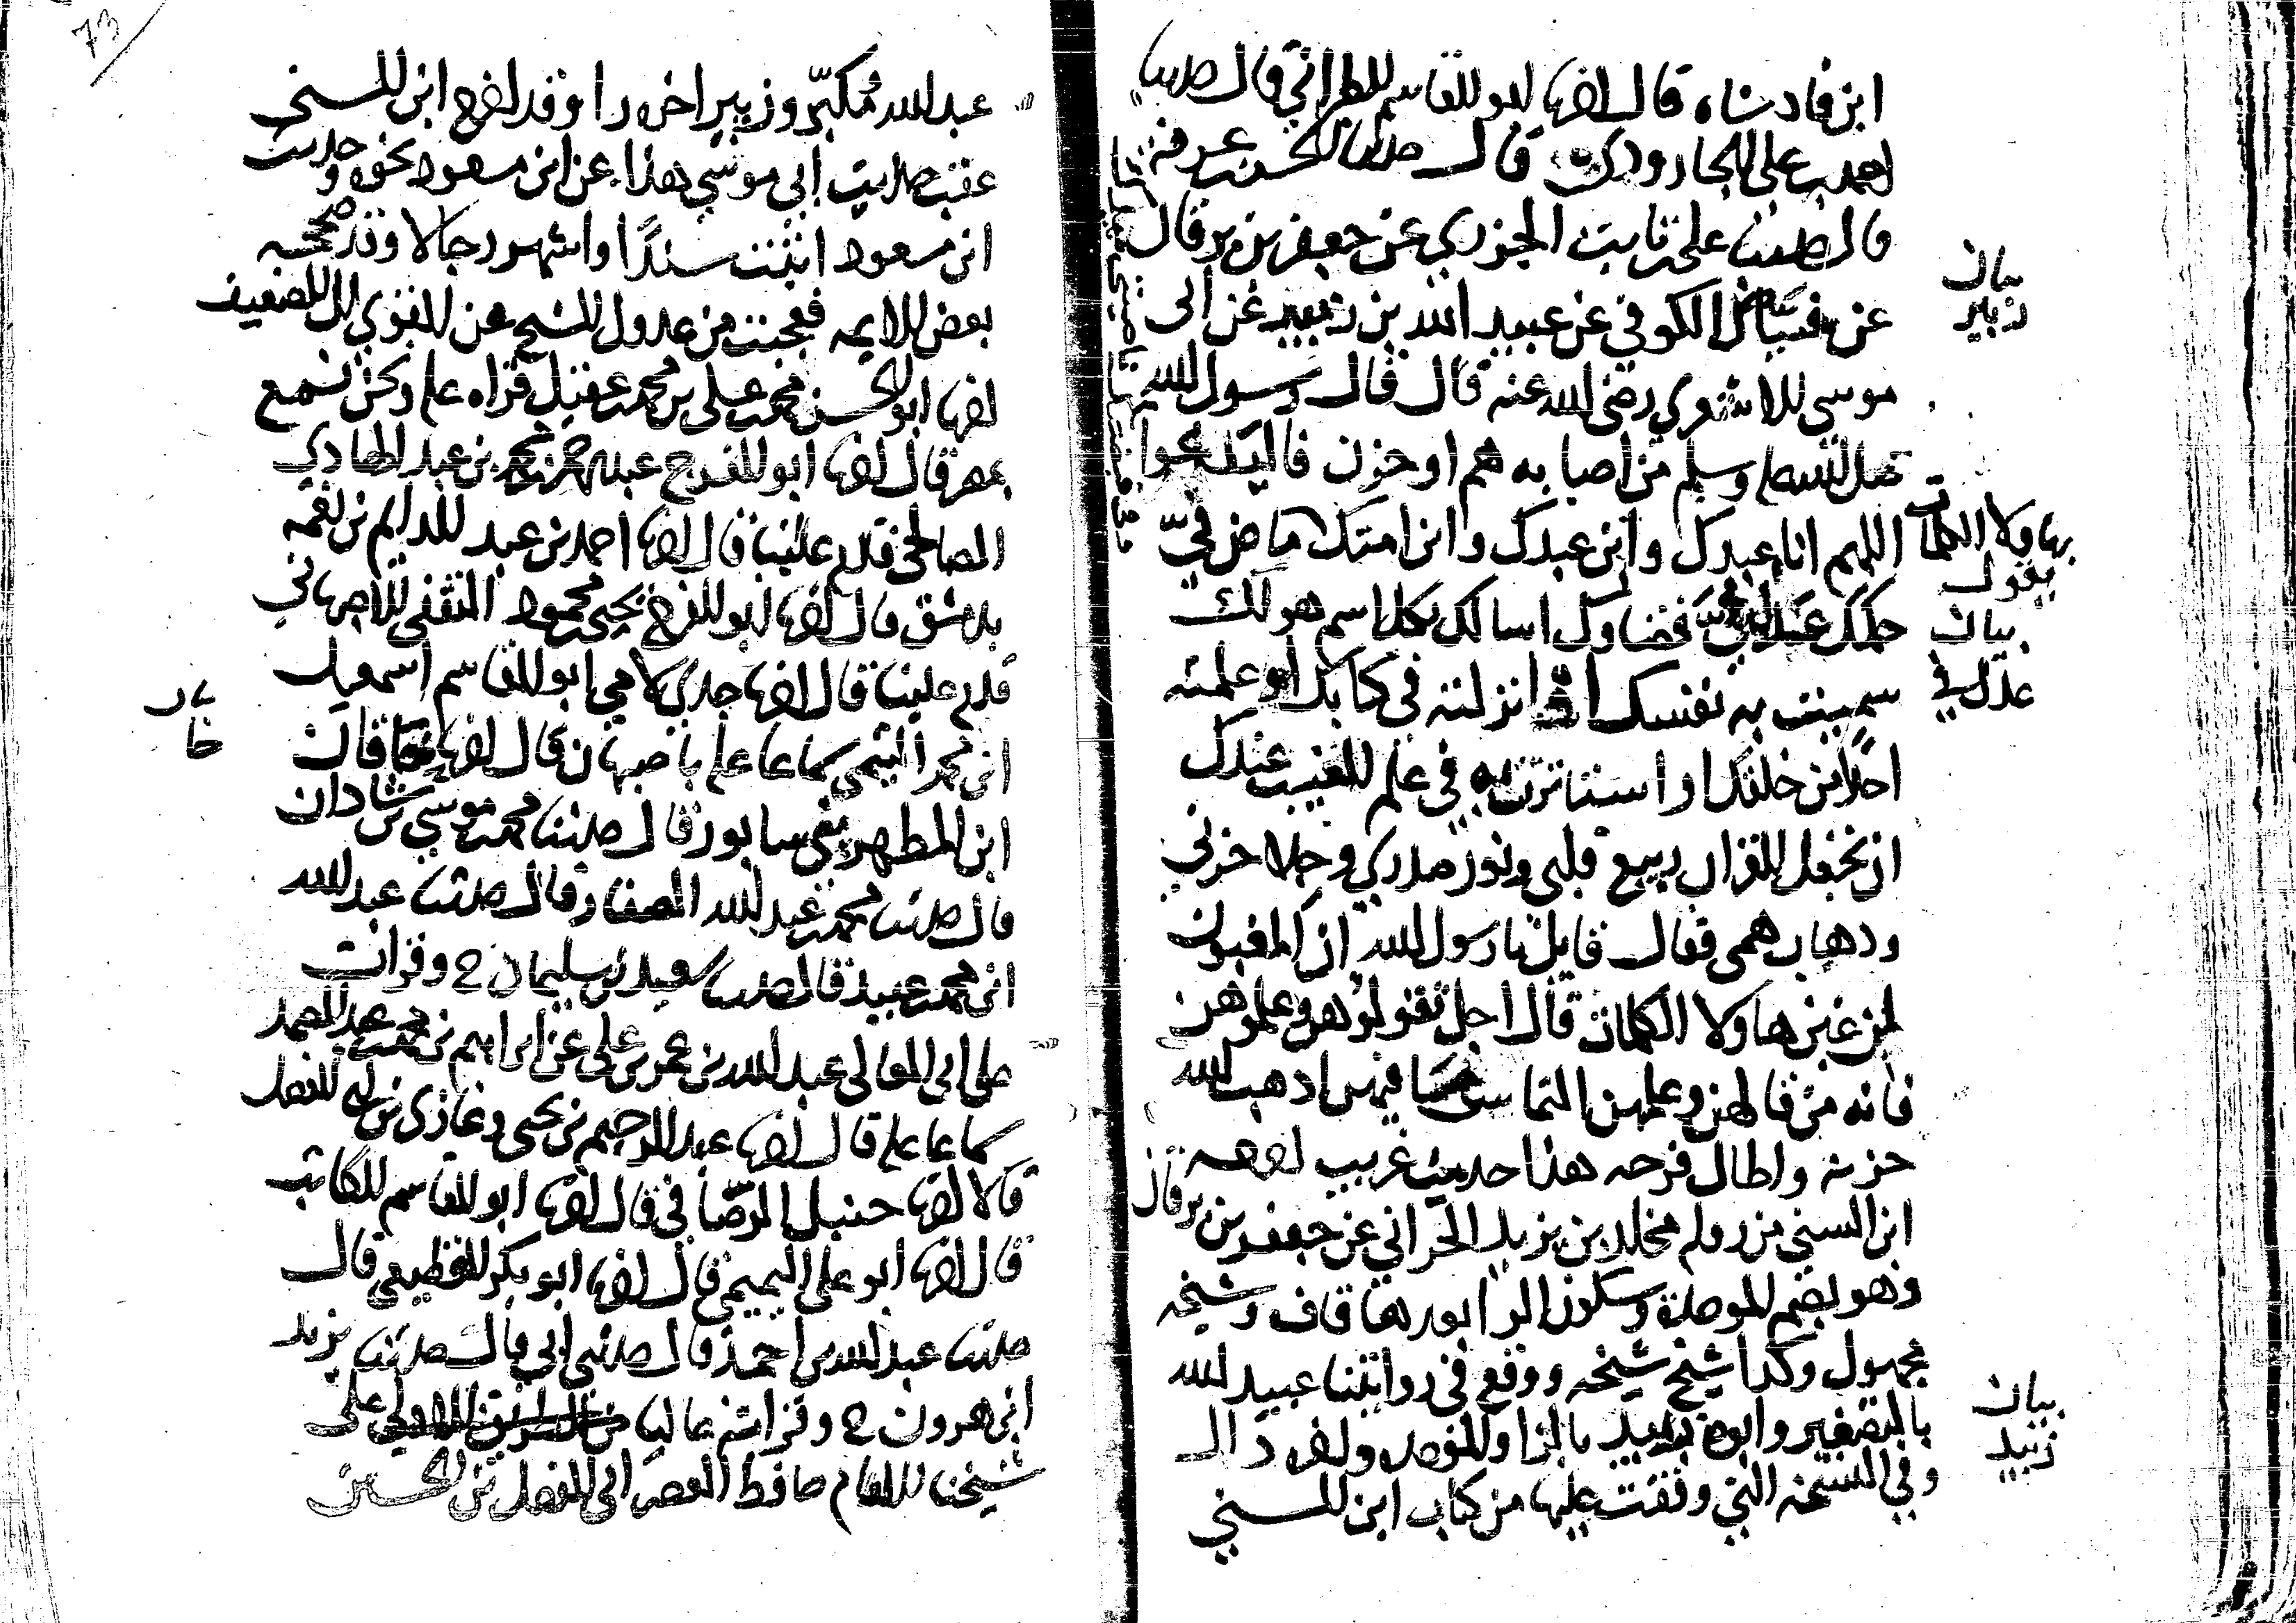 ابن فادشاه قال اخبرنا ابو القاسم الطبراني قال حدثنا
احمد بن علي الجارودي قال حدثنا الحسن بن عرفة
قال حدثنا علي بن ثابت الجزري عن جعفر بن برقان
عن فياض الكوفي عن عبيد الله بن زبيد عن ابي
موسى الاشعري رضي الله عنه قال قال رسول الله
صلى الله عليه وسلم من اصابه هم او حزن فاليدعوا
بهاولا الكلمات اللهم انا عبدك وابن عبدك وابن امتك ماض في
يقول
حكمك عدل في قضاوك اسالك بكل اسم هو لك
سميت به نفسك او انزلته في كتابك او علمته
احدا من خلقك او استاثرت به في علم الغيب عندك
ان تجعل القران ربيع قلبي ونور صدري وجلا حزني
ودهاب همي فقال قايل يا رسول الله ان المغبون
لمن غبن هاولا الكلمات قال اجل فقولوهن وعلموهن
فانه من قالهن وعلمهن التماس ما فيهن ادهب الله
حزنه واطال فرحه هذا حديث غريب اخرجه
ابن السني من رواية مخلد بن يزيد الحراني عن جعفر بن برقان
وهو بضم الموحدة وسكون الرا بعدها قاف وشيخه
مجهول وكذا شيخ شيخه ووقع في روايتنا عبيد الله
بالتصغير وابوه زبيد بالزا والموحدة واخره دال
وفي النسخة التي وقفت عليها من كتاب ابن السني
بيان
زبير
بيان
عدل في
بيان
زبيد
73
عبد الله مكبر وزبير اخره را وقد اخرج ابن السني
عقب حديث ابي موسى هذا عن ابن مسعود نحوه وحديث
ابن مسعود اثبت سندا واشهر رجالا وقد صححه
بعض الايمه فعجبت من عدول الشيخ عن القوي الى الضعيف
اخبرنا ابو الحسن محمد بن علي بن محمد بن عقيل قراه عليه ونحن نسمع
بمصر قال اخبرنا ابو الفرج عبد الرحمن بن محمد بن عبد الهادي
الصالحي قدم علينا قال اخبرنا احمد بن عبد الدايم بن نعمه
بدمشق قال اخبرنا ابو الفرج يحيى بن محمود الثقفي الاصبهاني
قدم علينا قال اخبرنا جدي لامي ابو القاسم اسمعيل
ابن محمد التيمي سماعا عليه باصبهان قال اخبرنا
ابن المطهر بنيسابور قال حدثنا محمد بن موسى بن شاذان
قال حدثنا محمد بن عبد الله الصفار قال حدثنا عبد الله
ابن محمد بن عبيد قال حدثنا سعيد بن سليمان ح وقرات
على ابي المعالي عبد الله بن عمر بن علي عن ابراهيم بن محمد بن عبد الصمد
سماعا عليه قال اخبرنا عبد الرحيم بن يحيى وغازي بن ابي الفضل
قالا اخبرنا حنبل الرصافي قال اخبرنا ابو القاسم الكاتب
قال اخبرنا ابو علي التميمي قال اخبرنا ابو بكر القطيعي قال
حدثنا عبد الله بن احمد قال حدثني ابي قال حدثنا يزيد
ابن هرون ح وقراته عاليا على
شيخنا الامام حافظ العصر ابي الفضل بن الحسين